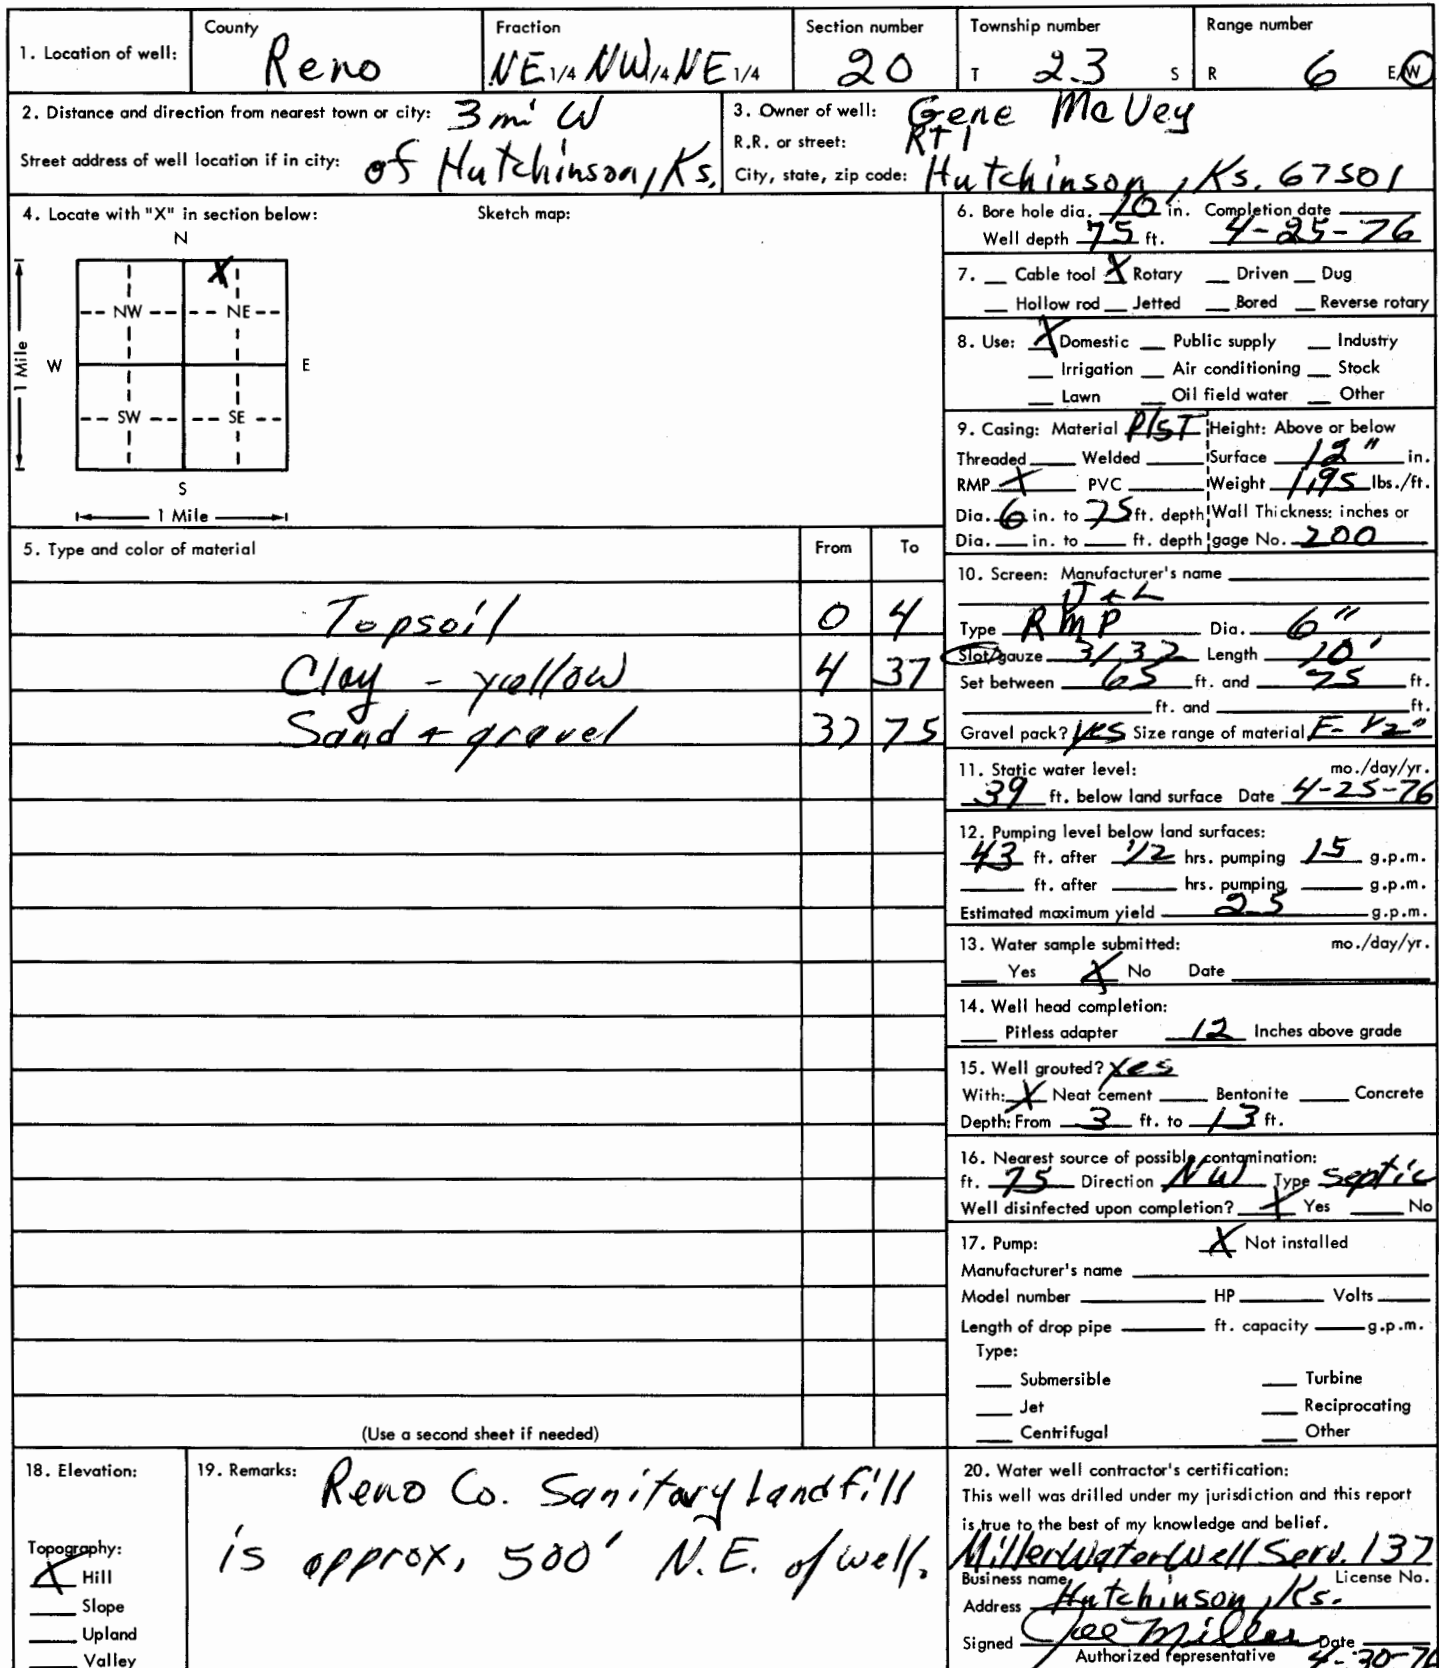 1. Location of well: County Reno Fraction NE 1/4 NW 1/4 NE 1/4 Section number 20 Township number T 23 S Range number R 6 E/W
2. Distance and direction from nearest town or city: 3 mi W
of Hutchinson, Ks.
Street address of well location if in city:
3. Owner of well: Gene McVey
R.R. or street: Rt 1
City, state, zip code: Hutchinson, Ks. 67501
4. Locate with "X" in section below: Sketch map:
N
X
NW NE
W E
SW SE
S
1 Mile
1 Mile
5. Type and color of material From To
Topsoil 0 4
Clay - yellow 4 37
Sand + gravel 37 75
(Use a second sheet if needed)
6. Bore hole dia. 10 in. Completion date
Well depth 75 ft. 4-25-76
7. Cable tool X Rotary Driven Dug
Hollow rod Jetted Bored Reverse rotary
8. Use: X Domestic Public supply Industry
Irrigation Air conditioning Stock
Lawn Oil field water Other
9. Casing: Material PlST Height: Above or below
Threaded Welded Surface 12" in.
RMP X PVC Weight 1.95 lbs./ft.
Dia. 6 in. to 75 ft. depth Wall Thickness: inches or
Dia. in. to ft. depth gage No. 200
10. Screen: Manufacturer's name
J+L
Type RMP Dia. 6"
Slot/gauze 3/32 Length 10'
Set between 65 ft. and 75 ft.
ft. and ft.
Gravel pack? yes Size range of material F- 1/2"
11. Static water level: mo./day/yr.
39 ft. below land surface Date 4-25-76
12. Pumping level below land surfaces:
43 ft. after 1/2 hrs. pumping 15 g.p.m.
ft. after hrs. pumping g.p.m.
Estimated maximum yield 25 g.p.m.
13. Water sample submitted: mo./day/yr.
Yes X No Date
14. Well head completion:
Pitless adapter 12 Inches above grade
15. Well grouted? yes
With: X Neat cement Bentonite Concrete
Depth: From 3 ft. to 13 ft.
16. Nearest source of possible contamination:
ft. 75 Direction NW Type septic
Well disinfected upon completion? X Yes No
17. Pump: X Not installed
Manufacturer's name
Model number HP Volts
Length of drop pipe ft. capacity g.p.m.
Type:
Submersible Turbine
Jet Reciprocating
Centrifugal Other
18. Elevation:
Topography:
X Hill
Slope
Upland
Valley
19. Remarks: Reno Co. Sanitary Landfill
is approx. 500' N.E. of well.
20. Water well contractor's certification:
This well was drilled under my jurisdiction and this report
is true to the best of my knowledge and belief.
Miller Water Well Serv. 137
Business name License No.
Address Hutchinson, Ks.
Signed Joe Miller Date
Authorized representative 4-30-76